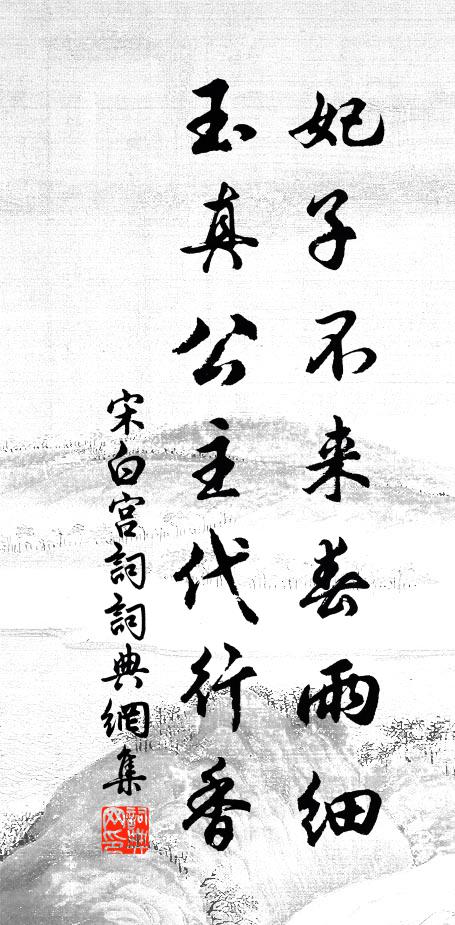 妃子不来春雨細
玉真公主代行香
宋白宫詞詞典網集